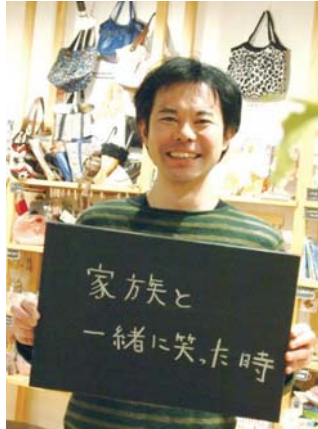 家族と
一緒に笑った時